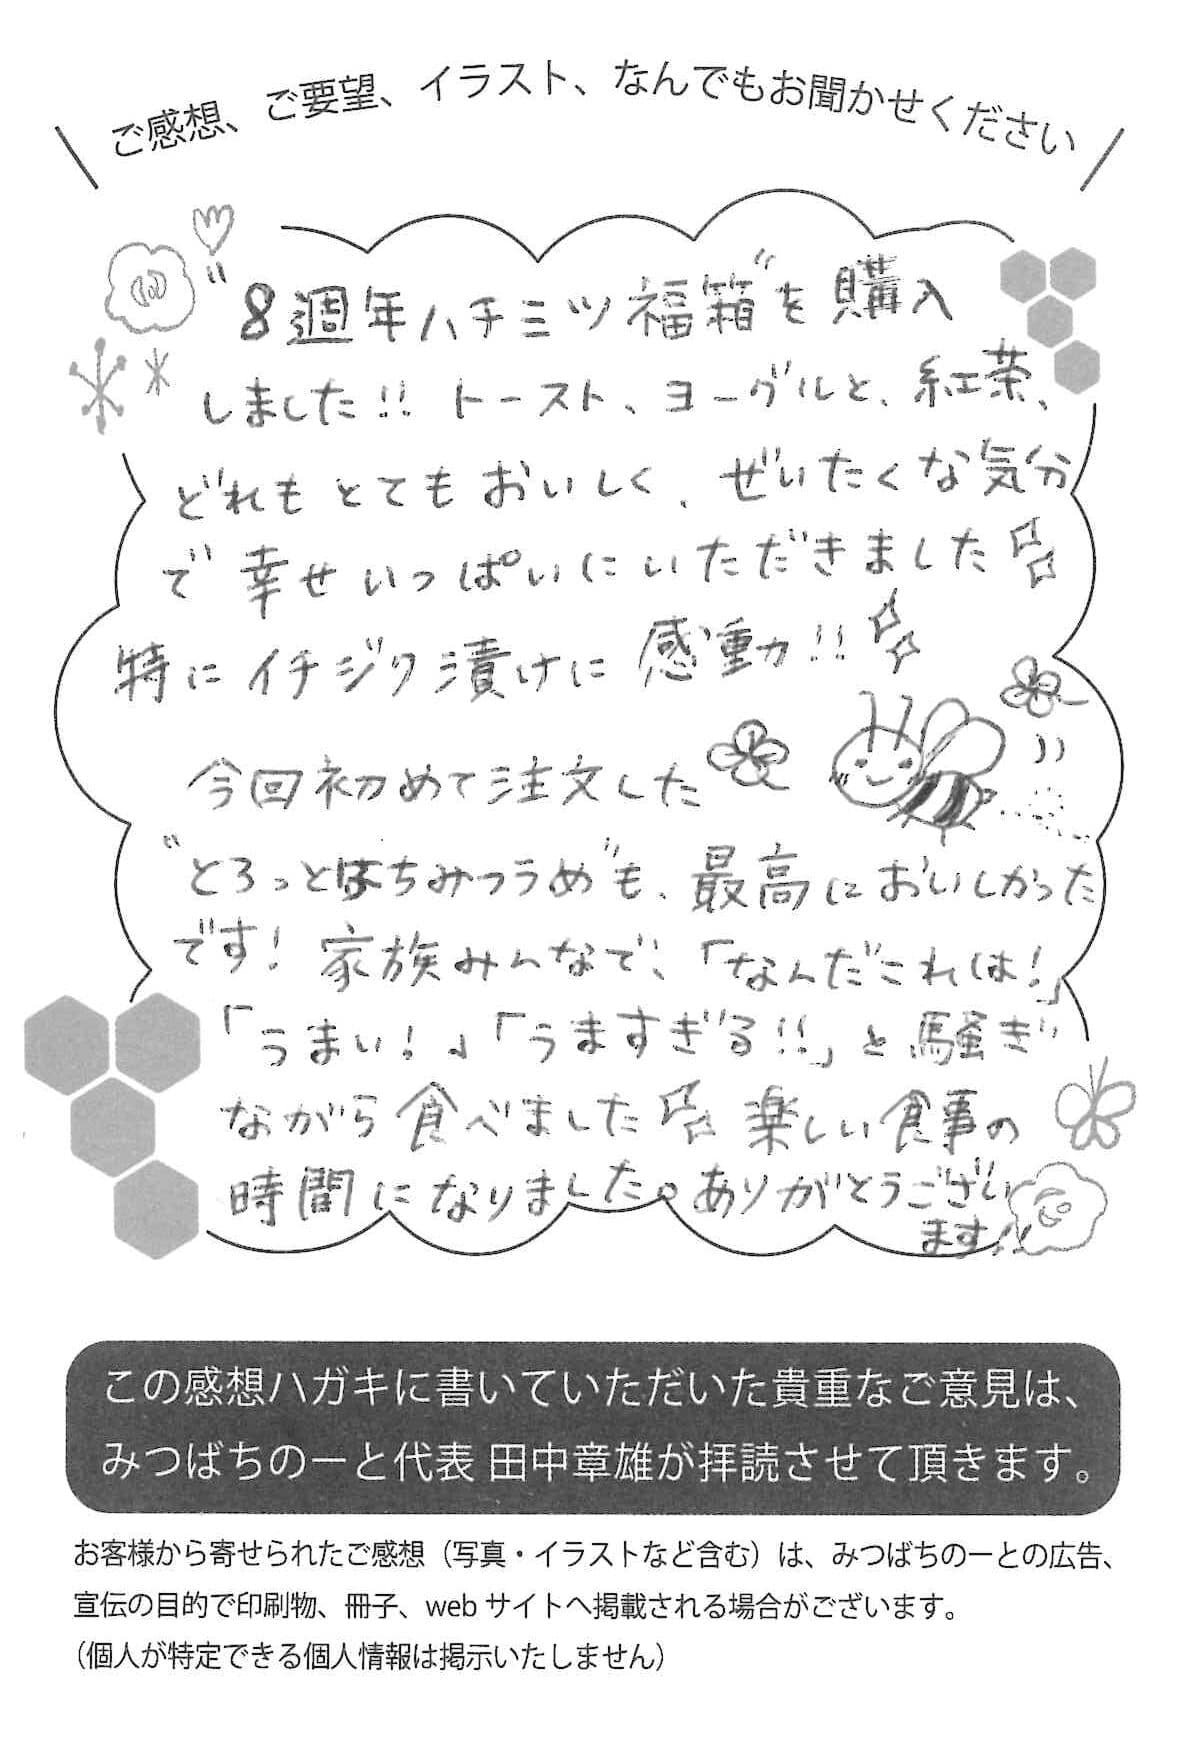 ご感想、ご要望、イラスト、なんでもお聞かせください
"8週年ハチミツ福箱"を購入
しました!! トースト、ヨーグルと、紅茶、
どれもとてもおいしく、ぜいたくな気分
で幸せいっぱいにいただきました
特にイチジク漬けに感動!!
今回初めて注文した
"とろっとはちみつうめ"も、最高においしかった
です! 家族みんなで、「なんだこれは!」
「うまい!」「うますぎる!!」と騒ぎ
ながら食べました 楽しい食事の
時間になりました。ありがとうござい
ます!!
この感想ハガキに書いていただいた貴重なご意見は、
みつばちのーと代表 田中章雄が拝読させて頂きます。
お客様から寄せられたご感想（写真・イラストなど含む）は、みつばちのーとの広告、
宣伝の目的で印刷物、冊子、web サイトへ掲載される場合がございます。
（個人が特定できる個人情報は掲示いたしません）